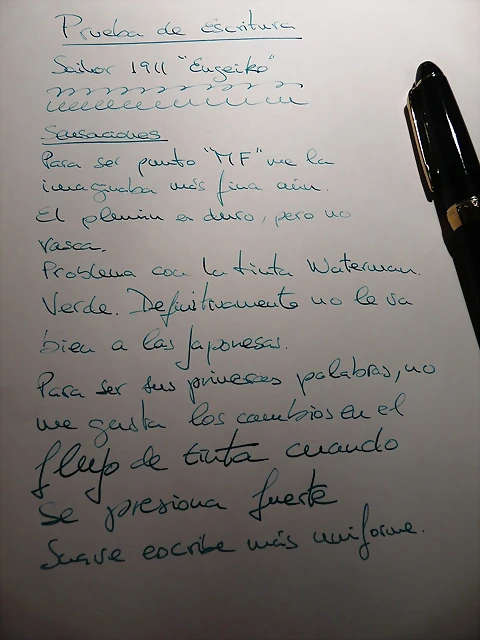 Prueba de Escritura
Sailor 1911 "Eugeiko"
Sensaciones
Para ser punto "MF" me la
imaginaba más fina aún.
El plumín es duro, pero no
rasca.
Problema con la tinta Waterman.
Verde. Definitivamente no le va
bien a las Japonesas.
Para ser sus primeras palabras, no
me gusta los cambios en el
flujo de tinta cuando
se presiona fuerte
Suave escribe más uniforme.